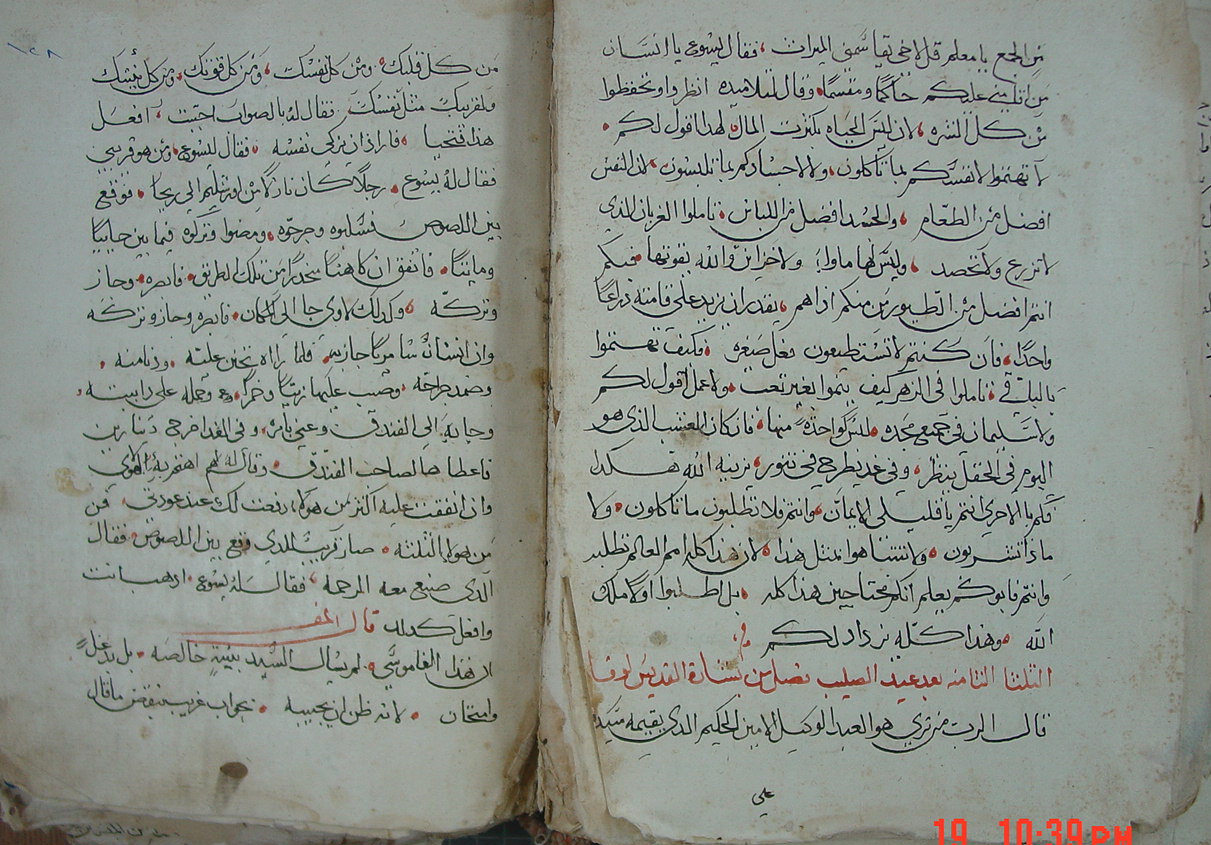 من الجمع يا معلم قل لاخي يقاسمني الميراث، فقال ليسوع يا انسان
من اقامني عليكم حاكمًا ومقسمًا وقال لتلاميذه انظروا وتحفظوا
من كل الشره لان ليس الحياه بكثرت المال لهذا اقول لكم
لا تهتموا لانفسكم بما تاكلون ولا لاجسادكم بما تلبسون لان النفس
افضل من الطعام والجسد افضل من اللباس تاملوا الغربان الذي
لا تزرع ولا تحصد وليس لها ماوا ولا خزاين والله يقوتها فبكم
انتم افضل من الطيور من منكم اذا هم يقدر ان يزيد على قامته ذراعًا
واحدًا فان كنتم لا تستطيعون فعل صغيره فكيف تهتموا
بالباقي تاملوا في الزهر كيف ينموا بغير تعب ولا عمل اقول لكم
ولا سليمان في جميع مجده لبس كواحدة منها فان كان العشب الذي هو
اليوم في الحقل ينظر وفي غد يطرح في تنور يزينه الله هكدا
فكم بالاحري انتم يا قليلي الايمان وانتم فلا تطلبون ما تاكلون ولا
ماذا تشربون ولا تتناهوا بمثل هذا لان هذا كله امم العالم تطلبه
وانتم فابوكم يعلم انكم محتاجين هذا كله بل اطلبوا اولا ملك
الله وهذا كله يزداد لكم
الثلثا الثامنه بعد عيد الصليب فصل من بشارة القديس لوقا
قال الرب من تري هو العبد الوكيل الامين الحكيم الدي يقيمه سيده
علي
١٢٨
من كل قلبك ومن كل نفسك ومن كل قوتك ومن كل نيتك
ولقريبك مثل نفسك فقال له بالصواب اجبت افعل
هذا فتحيا فاراد ان يزكي نفسه فقال ليسوع ومن هو قريبي
فقال له يسوع رجلًا كان نازلًا من اورشليم الي ريحا فوقع
بين اللصوص فسلبوه وجرحوه ومضوا وتركوه فيما بين حاييًا
ومايتًا فاتفق ان كاهنًا منحدرًا من تلك الطريق فابصره وجاز
وتركه وكدلك لاوي جا الى المكان فابصره وجاز وتركه
وان انسانٌ سامريًا جاز به فلما راه تحنن عليه ودنا منه
وضمد جراحه وصب عليها زيتًا وخمرًا وحمله على دابته
وجا به الى الفندق وعني بامره وفي الغد اخرج دينارين
فاعطاهما لصاحب الفندق وقال له اهتم به
وان انفقت عليه اكثر من هولا دفعت لك عند عودتي فمن
من هولا الثلثه صار قريب للدي وقع بين اللصوص فقال
الدي صنع معه الرحمه فقال له يسوع ادهب انت
وافعل كدلك قال المفسر
ان هذا الناموسي لم يسال السيد بنيه خالصه بل بدغلٍ
وامتحان لانه ظن ان يجيبه بجواب غريب ينقض ما قال